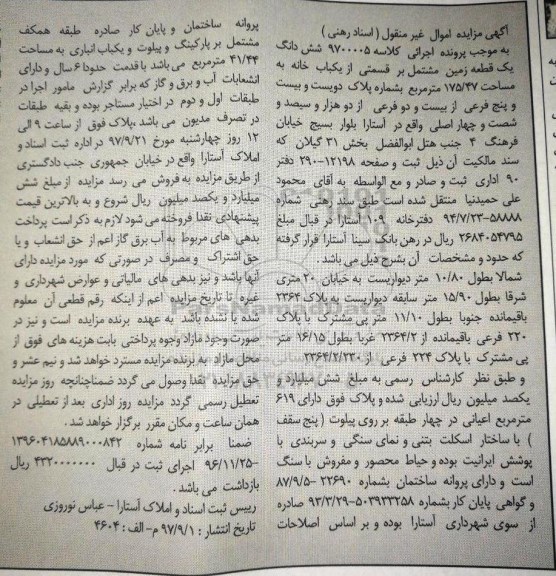 آگهی مزایده اموال غیر منقول (اسناد رهنی)
به موجب پرونده اجرائی کلاسه ۹۷۰۰۰۰۵ شش دانگ
یک قطعه زمین مشتمل بر قسمتی از یکباب خانه به
مساحت ۱۷۵/۴۷ مترمربع بشماره پلاک دویست و بیست
و پنج فرعی از بیست و دو فرعی از دو هزار و سیصد و
شصت و چهار اصلی واقع در آستارا بلوار بسیج خیابان
فرهنگ ۴ جنب هتل ابوالفضل بخش ۳۱ گیلان که
سند مالکیت آن ذیل ثبت و صفحه ۱۲۱۹۸-۲۹۰ دفتر
۹۰ اداری ثبت و صادر و مع الواسطه به آقای محمود
علی حمیدنیا منتقل شده است طبق سند رهنی شماره
۵۸۸۸۸-۹۴/۷/۲۳ دفترخانه ۱۰۹ آستارا در قبال مبلغ
۲۶۸۴۰۵۴۷۹۵ ریال در رهن بانک سینا آستارا قرار گرفته
که حدود و مشخصات آن بشرح ذیل می باشد
شمالا بطول ۱۰/۸۰ متر دیواریست به خیابان ۲۰ متری
شرقا بطول ۱۵/۹۰ متر سابقه دیواریست به پلاک ۲۳۶۴
باقیمانده جنوبا بطول ۱۱/۱۰ متر پی مشترک با پلاک
۲۲۰ فرعی باقیمانده از ۲۳۶۴/۲ غربا بطول ۱۶/۱۵ متر
پی مشترک با پلاک ۲۲۴ فرعی از ۲۳۶۴/۲/۲۲۰
و طبق نظر کارشناس رسمی به مبلغ شش میلیارد و
یکصد میلیون ریال ارزیابی شده و پلاک فوق دارای ۶۱۹
مترمربع اعیانی در چهار طبقه بر روی پیلوت (پنج سقف
) با ساختار اسکلت بتنی و نمای سنگی و سربندی با
پوشش ایرانیت بوده و حیاط محصور و مفروش با سنگ
است و دارای پروانه ساختمان بشماره ۲۲۶۹۰-۸۷/۹/۵
و گواهی پایان کار بشماره ۵۰۳۹۳۳۲۵۸-۹۳/۳/۲۹ صادره
از سوی شهرداری آستارا بوده و بر اساس اصلاحات
پروانه ساختمان و پایان کار صادره طبقه همکف
مشتمل بر پارکینگ و پیلوت و یکباب انباری به مساحت
۴۱/۴۴ مترمربع می باشد با قدمت حدودا ۶ سال و دارای
انشعابات آب و برق و گاز که برابر گزارش مامور اجرا در
طبقات اول و دوم در اختیار مستاجر بوده و بقیه طبقات
در تصرف مدیون می باشد ،پلاک فوق از ساعت ۹ الی
۱۲ روز چهارشنبه مورخ ۹۷/۹/۲۱ در اداره ثبت اسناد و
املاک آستارا واقع در خیابان جمهوری جنب دادگستری
از طریق مزایده به فروش می رسد مزایده از مبلغ شش
میلیارد و یکصد میلیون ریال شروع و به بالاترین قیمت
پیشنهادی نقدا فروخته می شود لازم به ذکر است پرداخت
بدهی های مربوط به آب برق گاز اعم از حق انشعاب و یا
حق اشتراک و مصرف در صورتی که مورد مزایده دارای
آنها باشد و نیز بدهی های مالیاتی و عوارض شهرداری و
غیره تا تاریخ مزایده اعم از اینکه رقم قطعی آن معلوم
شده یا نشده باشد به عهده برنده مزایده است و نیز در
صورت وجود مازاد وجوه پرداختی بابت هزینه های فوق از
محل مازاد به برنده مزایده مسترد خواهد شد و نیم عشر و
حق مزایده نقدا وصول می گردد ضمنا چنانچه روز مزایده
تعطیل رسمی گردد مزایده روز اداری بعد از تعطیلی در
همان ساعت و مکان مقرر برگزار خواهد شد .
ضمنا برابر نامه شماره ۱۳۹۶۰۴۱۸۵۸۸۹۰۰۰۸۴۲
-۹۶/۱۱/۲۵ اجرای ثبت در قبال ۴۳۲۰۰۰۰۰۰۰ ریال
بازداشت می باشد .
رییس ثبت اسناد و املاک آستارا - عباس نوروزی
تاریخ انتشار : ۹۷/۹/۱ م-الف : ۴۶۰۴